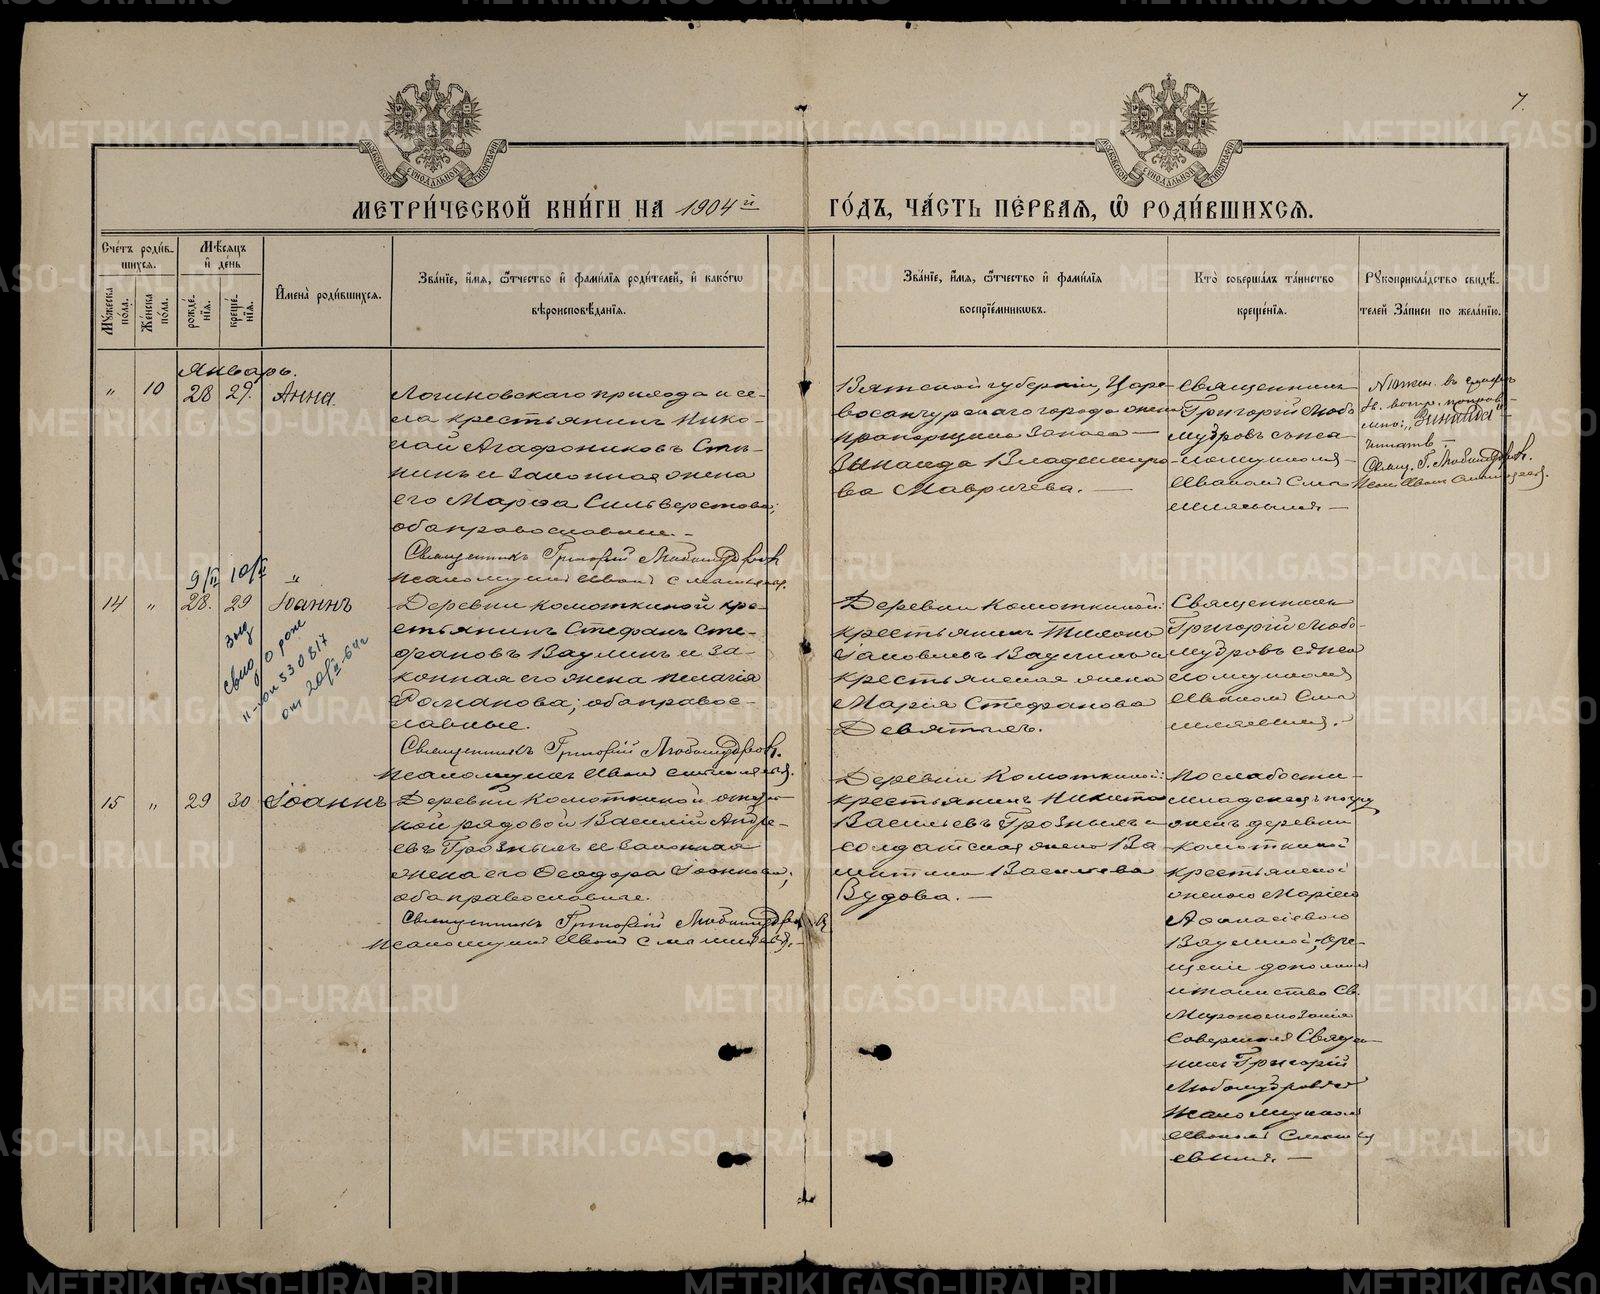 7.
МЕТРИ́ЧЕСКОЙ КНИ́ГИ НА 1904й ГО́ДЪ, ЧА́СТЬ ПЕ́РВАЯ, Ѿ РОДИ́ВШИХСЯ.
Сче́тъ роди́в-
шихся.
Мꙋжеска по́ла.
Же́нска по́ла.
Мѣ́сяцъ
и де́нь
рожде́нїя.
креще́нїя.
И҆мена̀ роди́вшихся.
Зва́нїе, и҆́мя, ѻ҆́тчество и҆ фами́лїя роди́телей, и҆ како́гѡ
вѣроисповѣ́данїя.
Зва́нїе, и҆́мя, ѻ҆́тчество и҆ фами́лїя
воспрїе́мникѡвъ.
Кто̀ соверша́лъ та́инство
креще́нїя.
Рꙋкоприкла́дство свидѣ́-
телей за́писи по жела́нїю.
Январь.
" 10 28 29. Анна.
Логиновскаго прихода и се-
ла крестьянинъ Нико-
лай Агафониковъ
и законная жена
его Марѳа Сильверстова;
оба православные. –
Священникъ Григорій Любомудровъ
Псаломщикъ Иванъ
Вятской губерніи, Царе-
восанчурскаго города жена
прапорщика запаса –
Зинаида Владимиро-
ва Мавричева. –
Священникъ
Григорій Любо-
мудровъ съ пса-
ломщикомъ
Иваномъ
Зинаида"
читать –
Свящ. Г. Любомудровъ.
Псал. Иванъ
9/II 10/II "
14 " 28. 29 Іоаннъ
выд
свид о рож
II-ЮИ 530817
от 20/II-64г
Деревни Комоткиной кре-
стьянинъ Стефанъ Сте-
фановъ Ваулинъ и за-
конная его жена Пелагія
Романова; оба правос-
лавные.
Священникъ Григорій Любомудровъ.
Псаломщикъ Иванъ
Деревни Комоткиной:
крестьянинъ Тихонъ
Ваулинъ и
крестьянская жена
Марія Стефанова
Девятыхъ.
Священникъ
Григорій Любо-
мудровъ съ пса-
ломщикомъ
Иваномъ
15 " 29 30 Іоаннъ
Деревни Комоткиной
рядовой Василій Андре-
евъ Грозныхъ и законная
жена его Ѳеодора Іоаннова;
оба православные.
Священникъ Григорій Любомудровъ
Псаломщикъ Иванъ
Деревни Комоткиной:
крестьянинъ Никита
Васильевъ Грозныхъ и
солдатская жена
Васильева
Вудова. –
По слабости –
младенецъ погру-
женъ деревни
Комоткиной
крестьянской
женою Маріею
Аѳанасіевою
Ваулиной;
дополнилъ
и таинство Св.
Мѵропомазанія
совершилъ Священ-
никъ Григорій
Любомудровъ съ
псаломщикомъ
Иваномъ